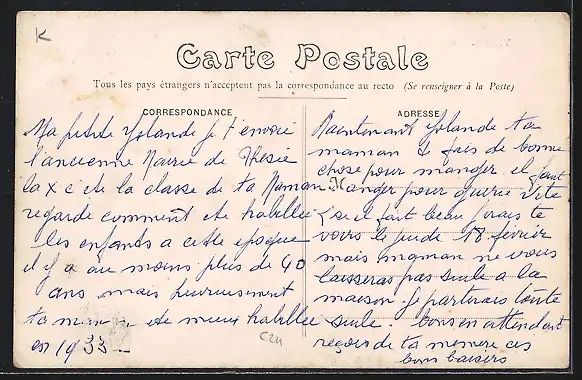 K
Carte Postale
Tous les pays étrangers n'acceptent pas la correspondance au recto (Se renseigner à la Poste)
CORRESPONDANCE
Ma petite Yolande je t'envoie
l'ancienne Mairie de Thesée
la x c'éte la classe de ta Maman
regarde comment éte habillée
les enfants a cette epoque
il y a au moins plus de 40
ans mais heureusement
ta maman éte mieux habillée
en 1933 -
C24
ADRESSE
Maintenant Yolande ta
maman te fais de bonne
chose pour manger il faut
Manger pour guerie vite
S'il fait beau j'irais te
voir le jeudi 18 février
mais maman ne vous
laisseras pas seule a la
maison. je partirais toute
seule. bons en attendant
reçois de ta memere ces
bons baisers